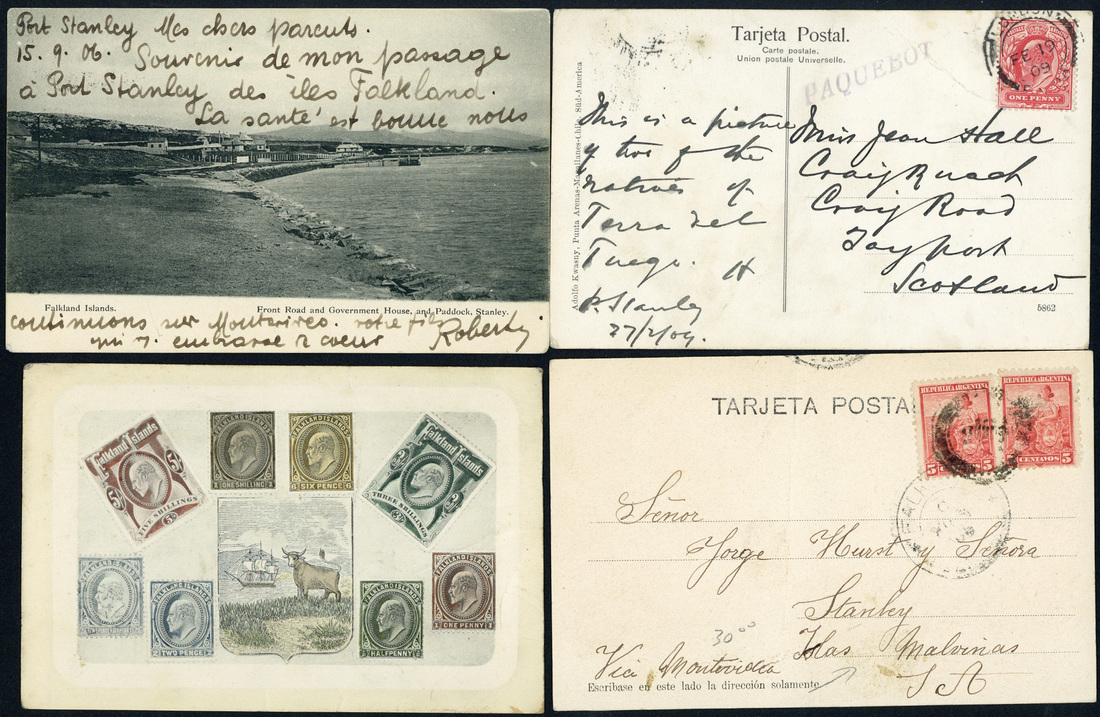 Port Stanley Mes chers parents.
15.9.06. Souvenir de mon passage
à Port Stanley des îles Falkland.
La santé est bonne nous
Falkland Islands.
Front Road and Government House, and Paddock, Stanley.
continuons sur Montevideo. votre fils
qui v. embrasse d coeur Robert
Tarjeta Postal.
Carte postale.
Union postale Universelle.
PAQUEBOT
FE 19
09
ONE PENNY
Adolfo Kwasny, Punta Arenas-Magallanes-Chile, Süd-America
This is a picture
of two of the
natives of
Terra del
Fuego. H
P. Stanley
27/2/09.
Miss Jean Hall
Craig
Craig Road
Tayport
Scotland
5862
Falkland Islands
5/-
FIVE SHILLINGS
5/-
FALKLAND ISLANDS
1 ONE SHILLING 1
FALKLAND ISLANDS
6 SIX PENCE 6
Falkland Islands
3/-
THREE SHILLINGS
3/-
FALKLAND ISLANDS
FALKLAND ISLANDS
2 TWO PENCE 2
FALKLAND ISLANDS
HALFPENNY
FALKLAND ISLANDS
1 ONE PENNY 1
TARJETA POSTAL
REPUBLICA ARGENTINA
5 CENTAVOS 5
REPUBLICA ARGENTINA
CENTAVOS 5
Señor
Jorge Hurst y Señora
Stanley
Islas Malvinas
S A
30 00
Via Montevideo
Escribase en este lado la dirección solamente